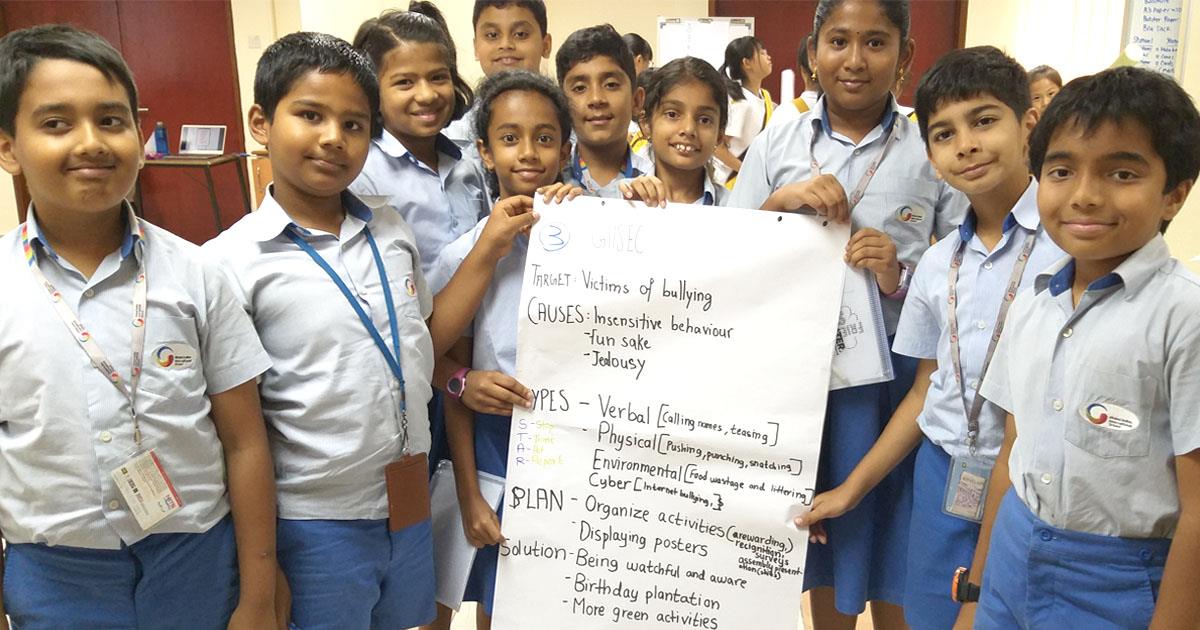 3 GIISEC
TARGET: Victims of bullying
CAUSES: Insensitive behaviour
- fun sake
- Jealousy
TYPES - Verbal [Calling names, teasing]
- Physical [Pushing, punching, snatching]
Environmental [Food wastage and littering]
Cyber [Internet bullying,]
S - Stop
T - Think
A - Act
R - Report
PLAN - Organize activities (arewarding,)
recignition,
surveys
assembly present
ation (skits)
- Displaying posters
Solution - Being watchful and aware
- Birthday plantation
- More green activities